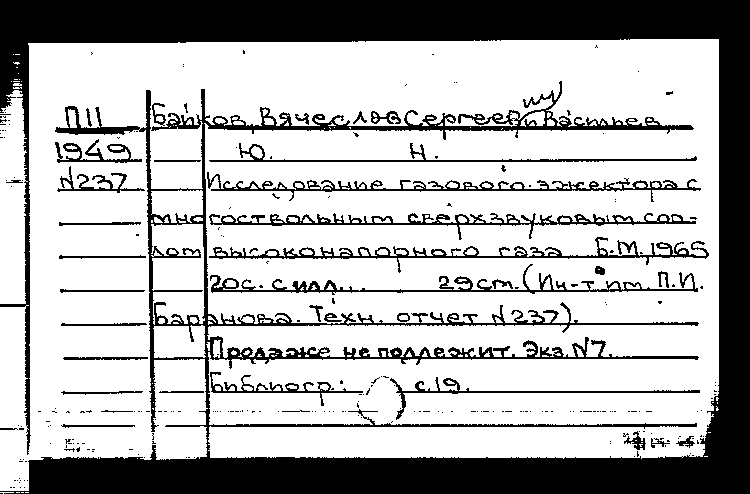 П11 Байков, Вячеслав Сергеевич и Васильев,
1949 Ю. Н.
N237 Исследование газового эжектора с
многоствольным сверхзвуковым соп-
лом высоконапорного газа Б.М., 1965
20с. с илл... 29см. (Ин-т им. П.И.
Баранова. Техн. отчет N237).
Продаже не подлежит. Экз. N7.
Библиогр: с.19.